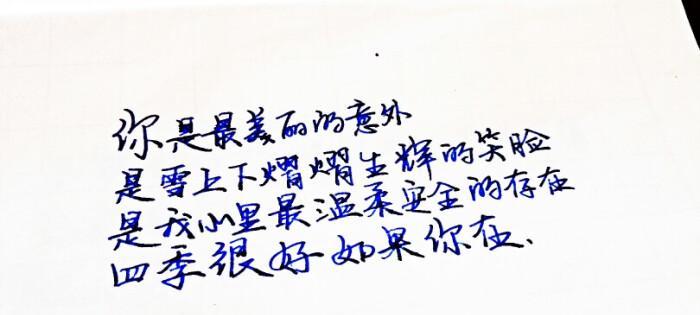 你是最美丽的意外
是雪上下熠熠生辉的笑脸
是我心里最温柔安全的存在
四季很好如果你在.